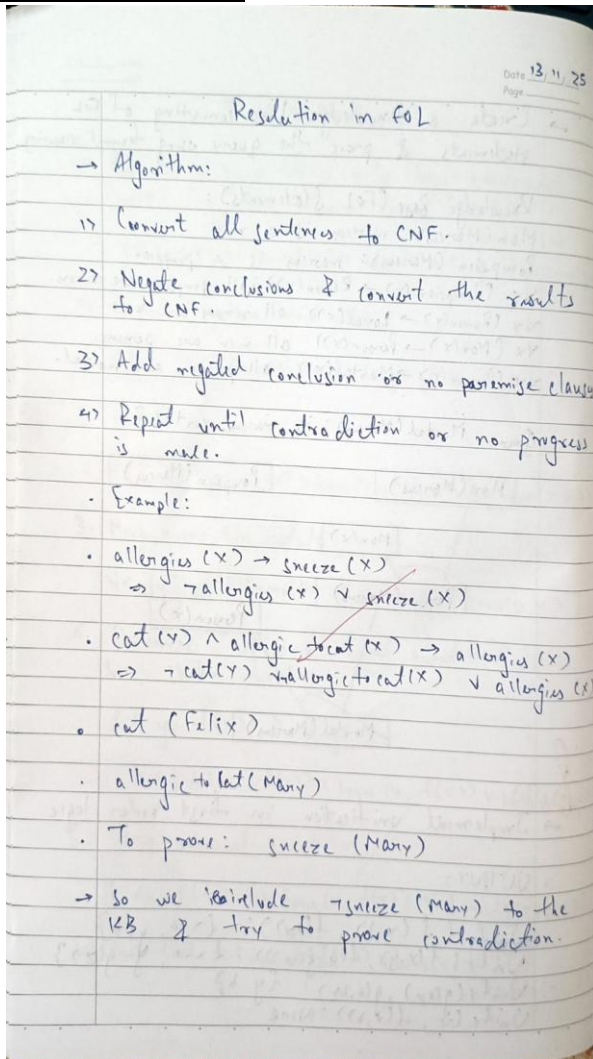 Date 13/11/25
Page
Resolution in FOL
→ Algorithm:
1> Convert all sentences to CNF.
2> Negate conclusions & convert the results
to CNF.
3> Add negated conclusion or no paremise clause
4> Repeat until contradiction or no progress
is made.
. Example:
. allergies (X) → sneeze (X)
⇒ ¬allergies (x) ∨ sneeze (X)
. cat (Y) ∧ allergic to cat (x) → allergies (X)
⇒ ¬cat(Y) ∨¬allergic to cat(X) ∨ allergies (X)
. cat (Felix)
. allergic to Cat (Mary)
. To prove: sneeze (Mary)
→ So we include ¬sneeze (Mary) to the
KB & try to prove contradiction.